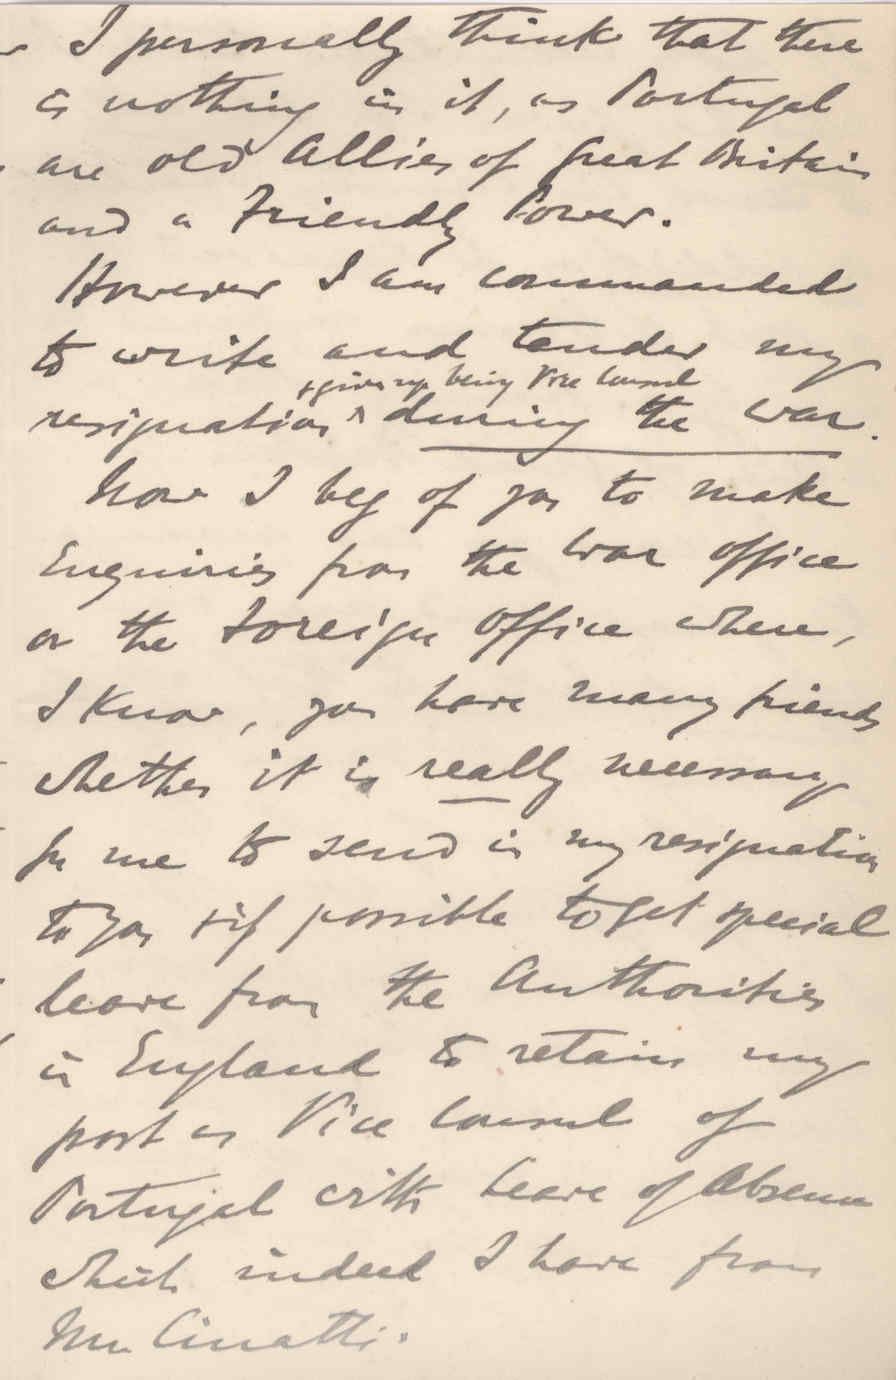 I personally think that there
is nothing in it, as Portugal
are old Allies of Great Britain
and a Friendly Power.
However I am commanded
to write and tender my
+ give up being Vice Consul
resignation ^ during the War.
Now I beg of you to make
Enquiries from the War Office
or the Foreign Office where,
I know, you have many friends
whether it is really necessary
for me to send in my resignation
to you + if possible to get special
leave from the Authorities
in England to retain my
post as Vice Consul of
Portugal with Leave of Absence
which indeed I have from
Mr. Cinatti.